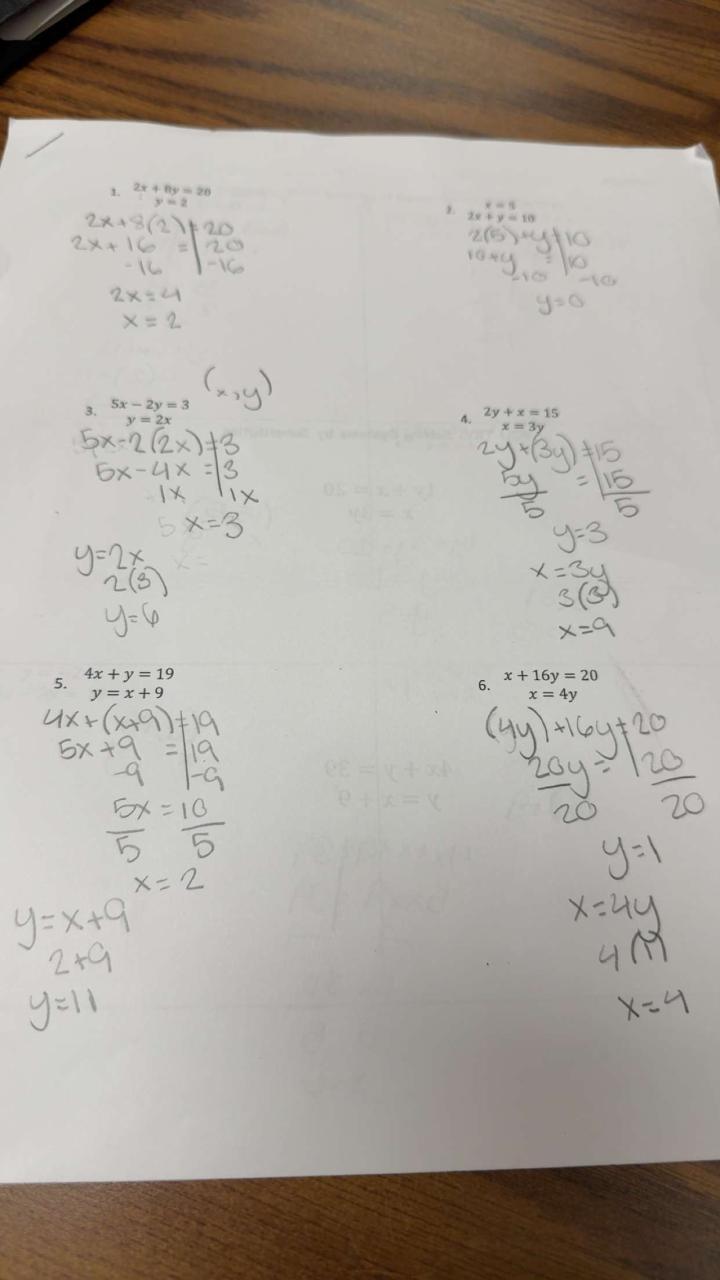 1. 2x + 8y = 20
y = 2
2x+8(2) = 20
2x+16 = 20
-16 -16
2x=4
x = 2
2. x = 5
2x + y = 10
2(5)+y=10
10+y = 10
-10 -10
y=0
(x,y)
3. 5x − 2y = 3
y = 2x
5x-2(2x)=3
5x-4x = 3
1x 1x
x=3
y=2x
2(3)
y=6
4. 2y + x = 15
x = 3y
2y+(3y)=15
5y = 15
5 5
y=3
x=3y
3(3)
x=9
5. 4x + y = 19
y = x + 9
4x+(x+9)=19
5x+9 = 19
-9 -9
5x = 10
5 5
x=2
y=x+9
2+9
y=11
6. x + 16y = 20
x = 4y
(4y)+16y=20
20y= 20
20 20
y=1
x=4y
4(1)
x=4